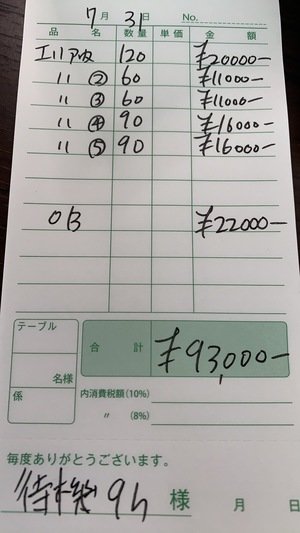 7月31日 No.
品名 数量 単価 金額
エリア 120 ¥20000-
〃 ② 60 ¥11000-
〃 ③ 60 ¥11000-
〃 ④ 90 ¥16000-
〃 ⑤ 90 ¥16000-
OB ¥22000-
テーブル
名様
係
合計 ¥93,000-
内消費税額(10%)
〃 (8%)
毎度ありがとうございます。
待機 9h 様 月 日